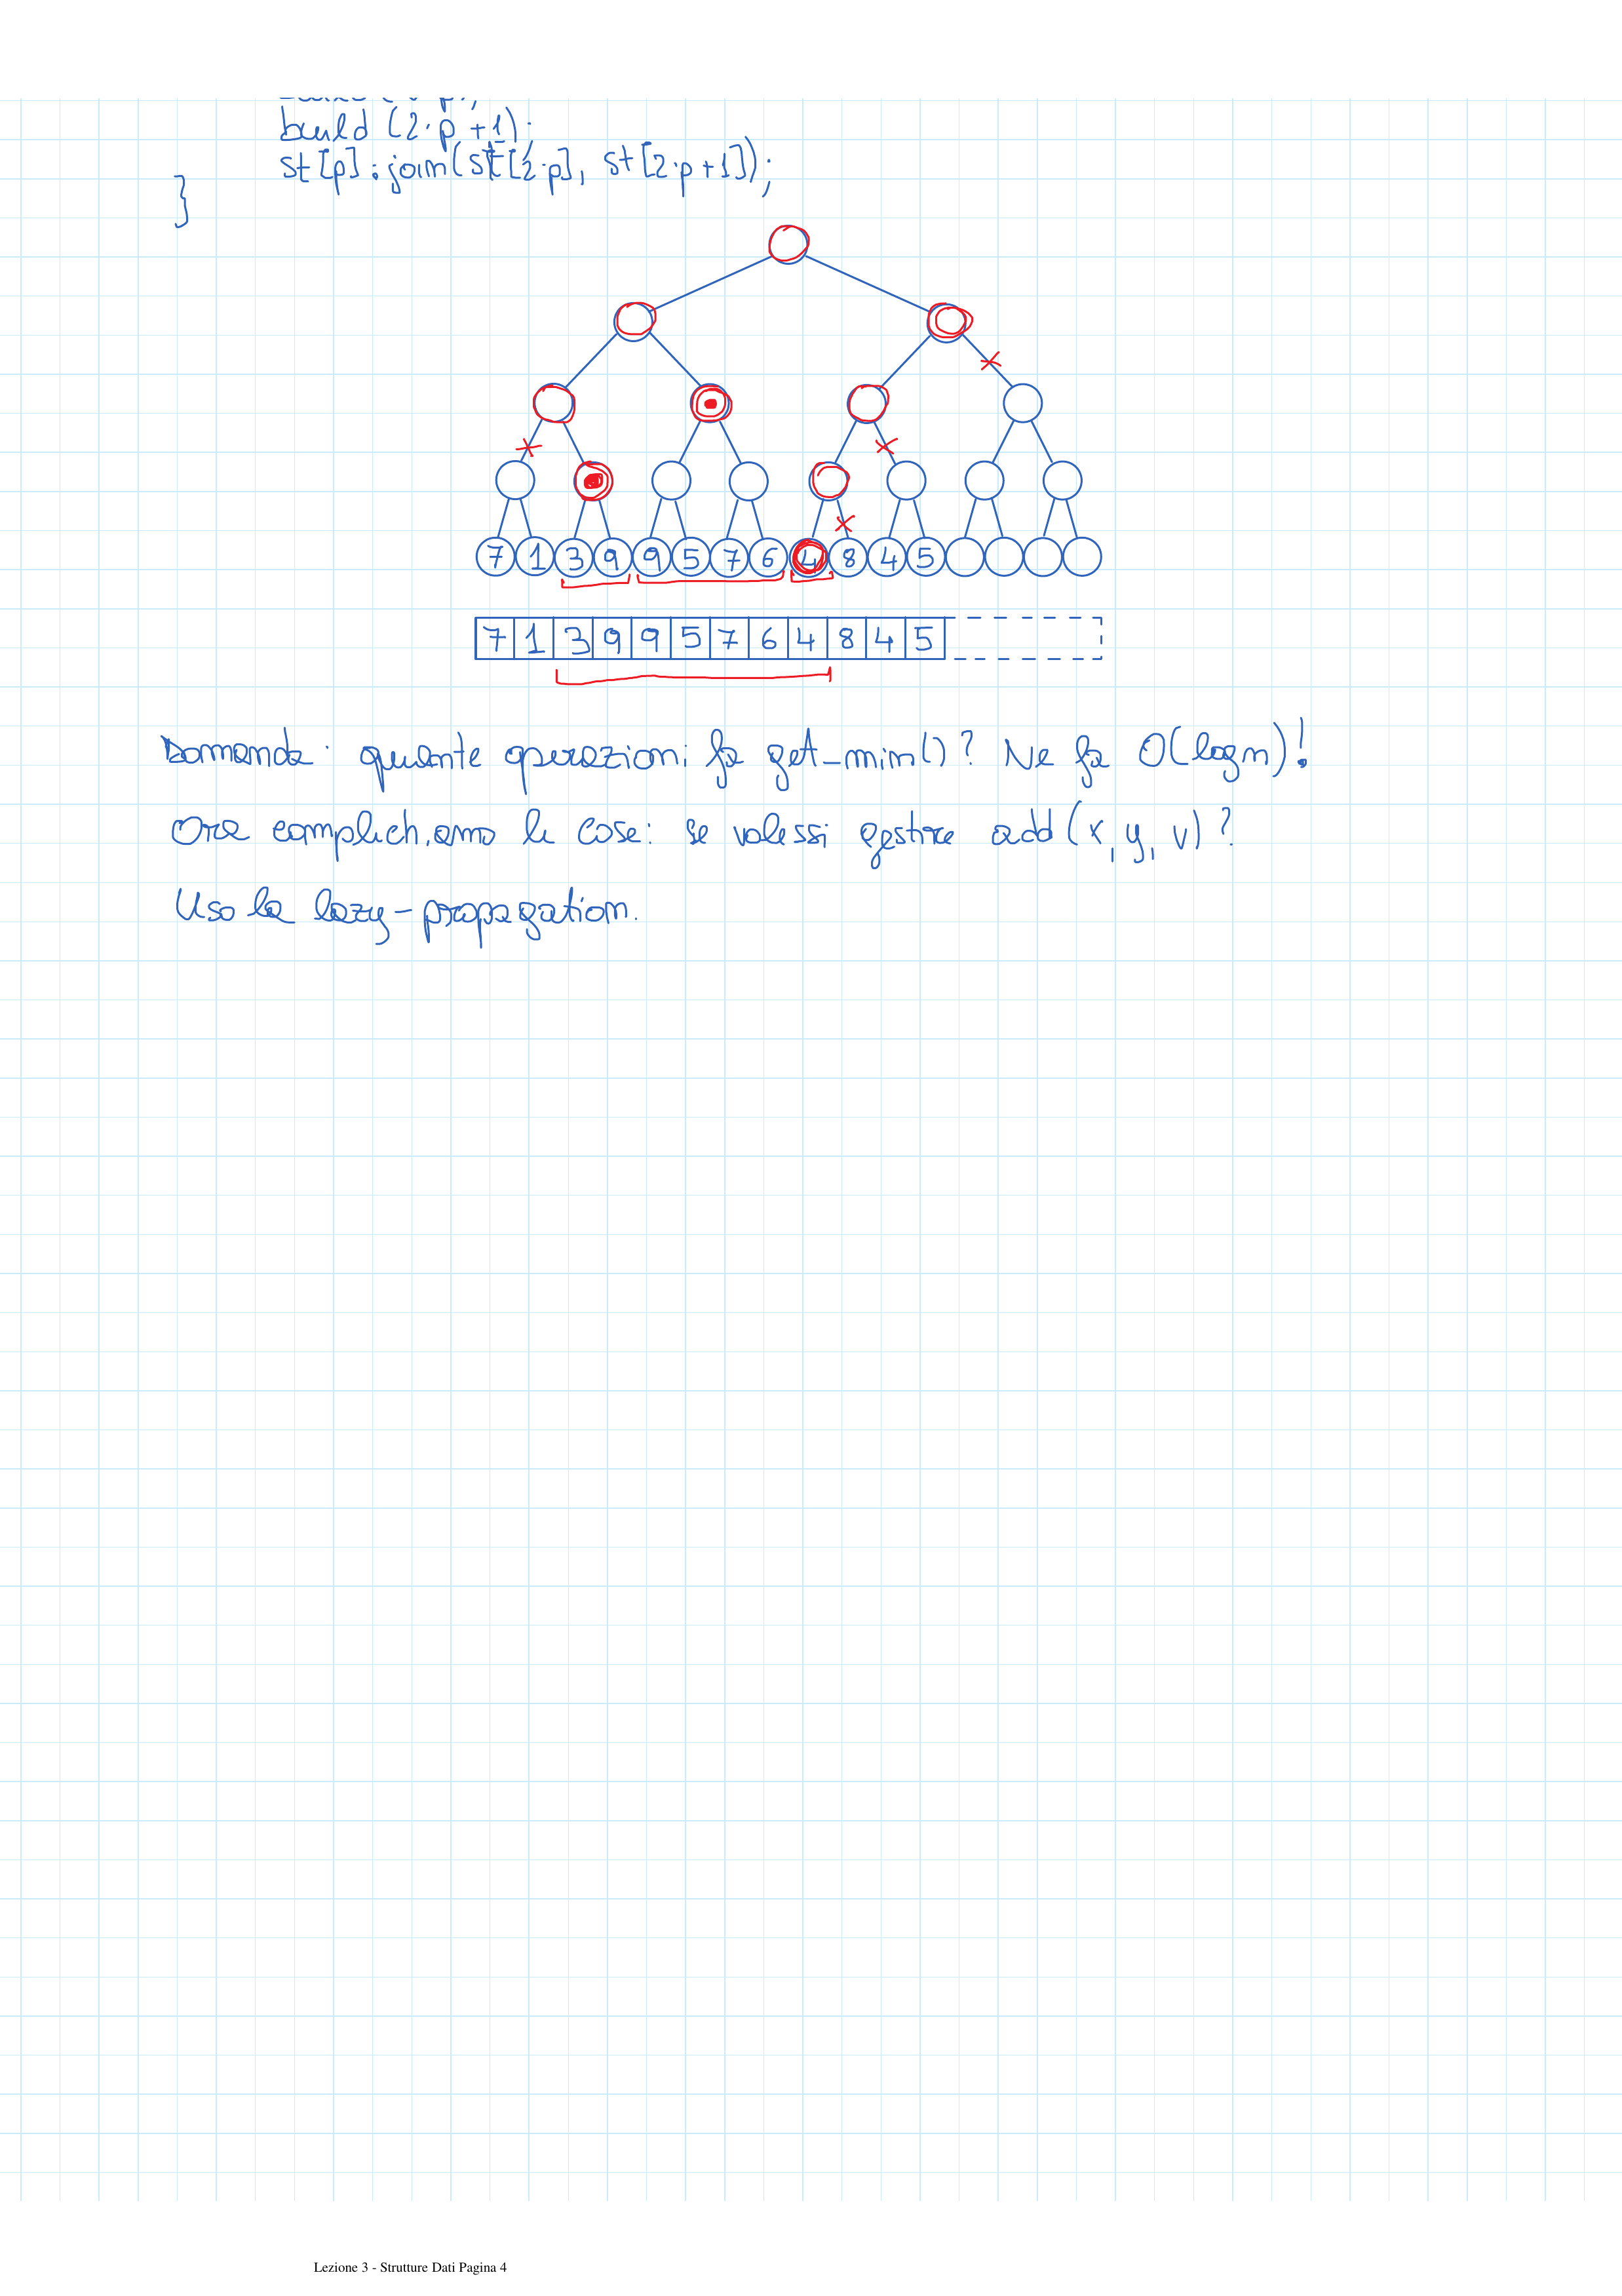 build (2·p +1);
st[p].join(st[2·p], st[2·p+1]);
}
7 1 3 9 9 5 7 6 4 8 4 5
7 1 3 9 9 5 7 6 4 8 4 5
Domanda: quante operazioni fa get_min()? Ne fa O(log n)!
Ora complichiamo le cose: se volessi gestire add (x, y, v)?
Uso la lazy-propagation.
Lezione 3 - Strutture Dati Pagina 4